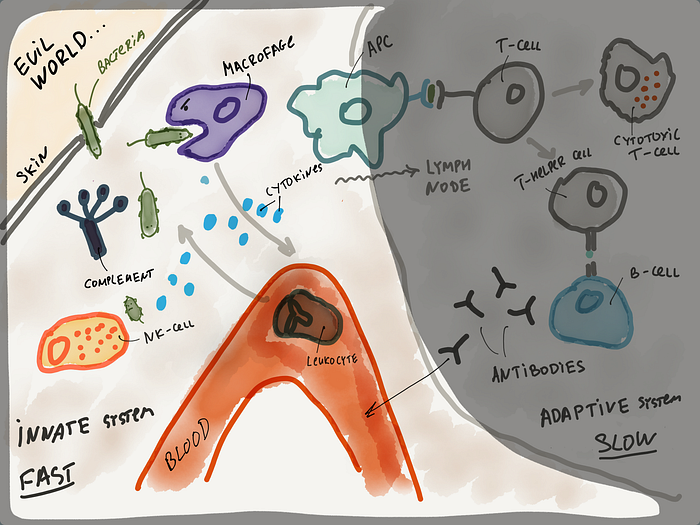 EVIL
WORLD...
BACTERIA
SKIN
MACROFAGE
APC
T-CELL
CYTOTOXIC
T-CELL
T-HELPER CELL
LYMPH
NODE
CYTOKINES
COMPLEMENT
NK-CELL
LEUKOCYTE
B-CELL
ANTIBODIES
BLOOD
INNATE SYSTEM
FAST
ADAPTIVE SYSTEM
SLOW